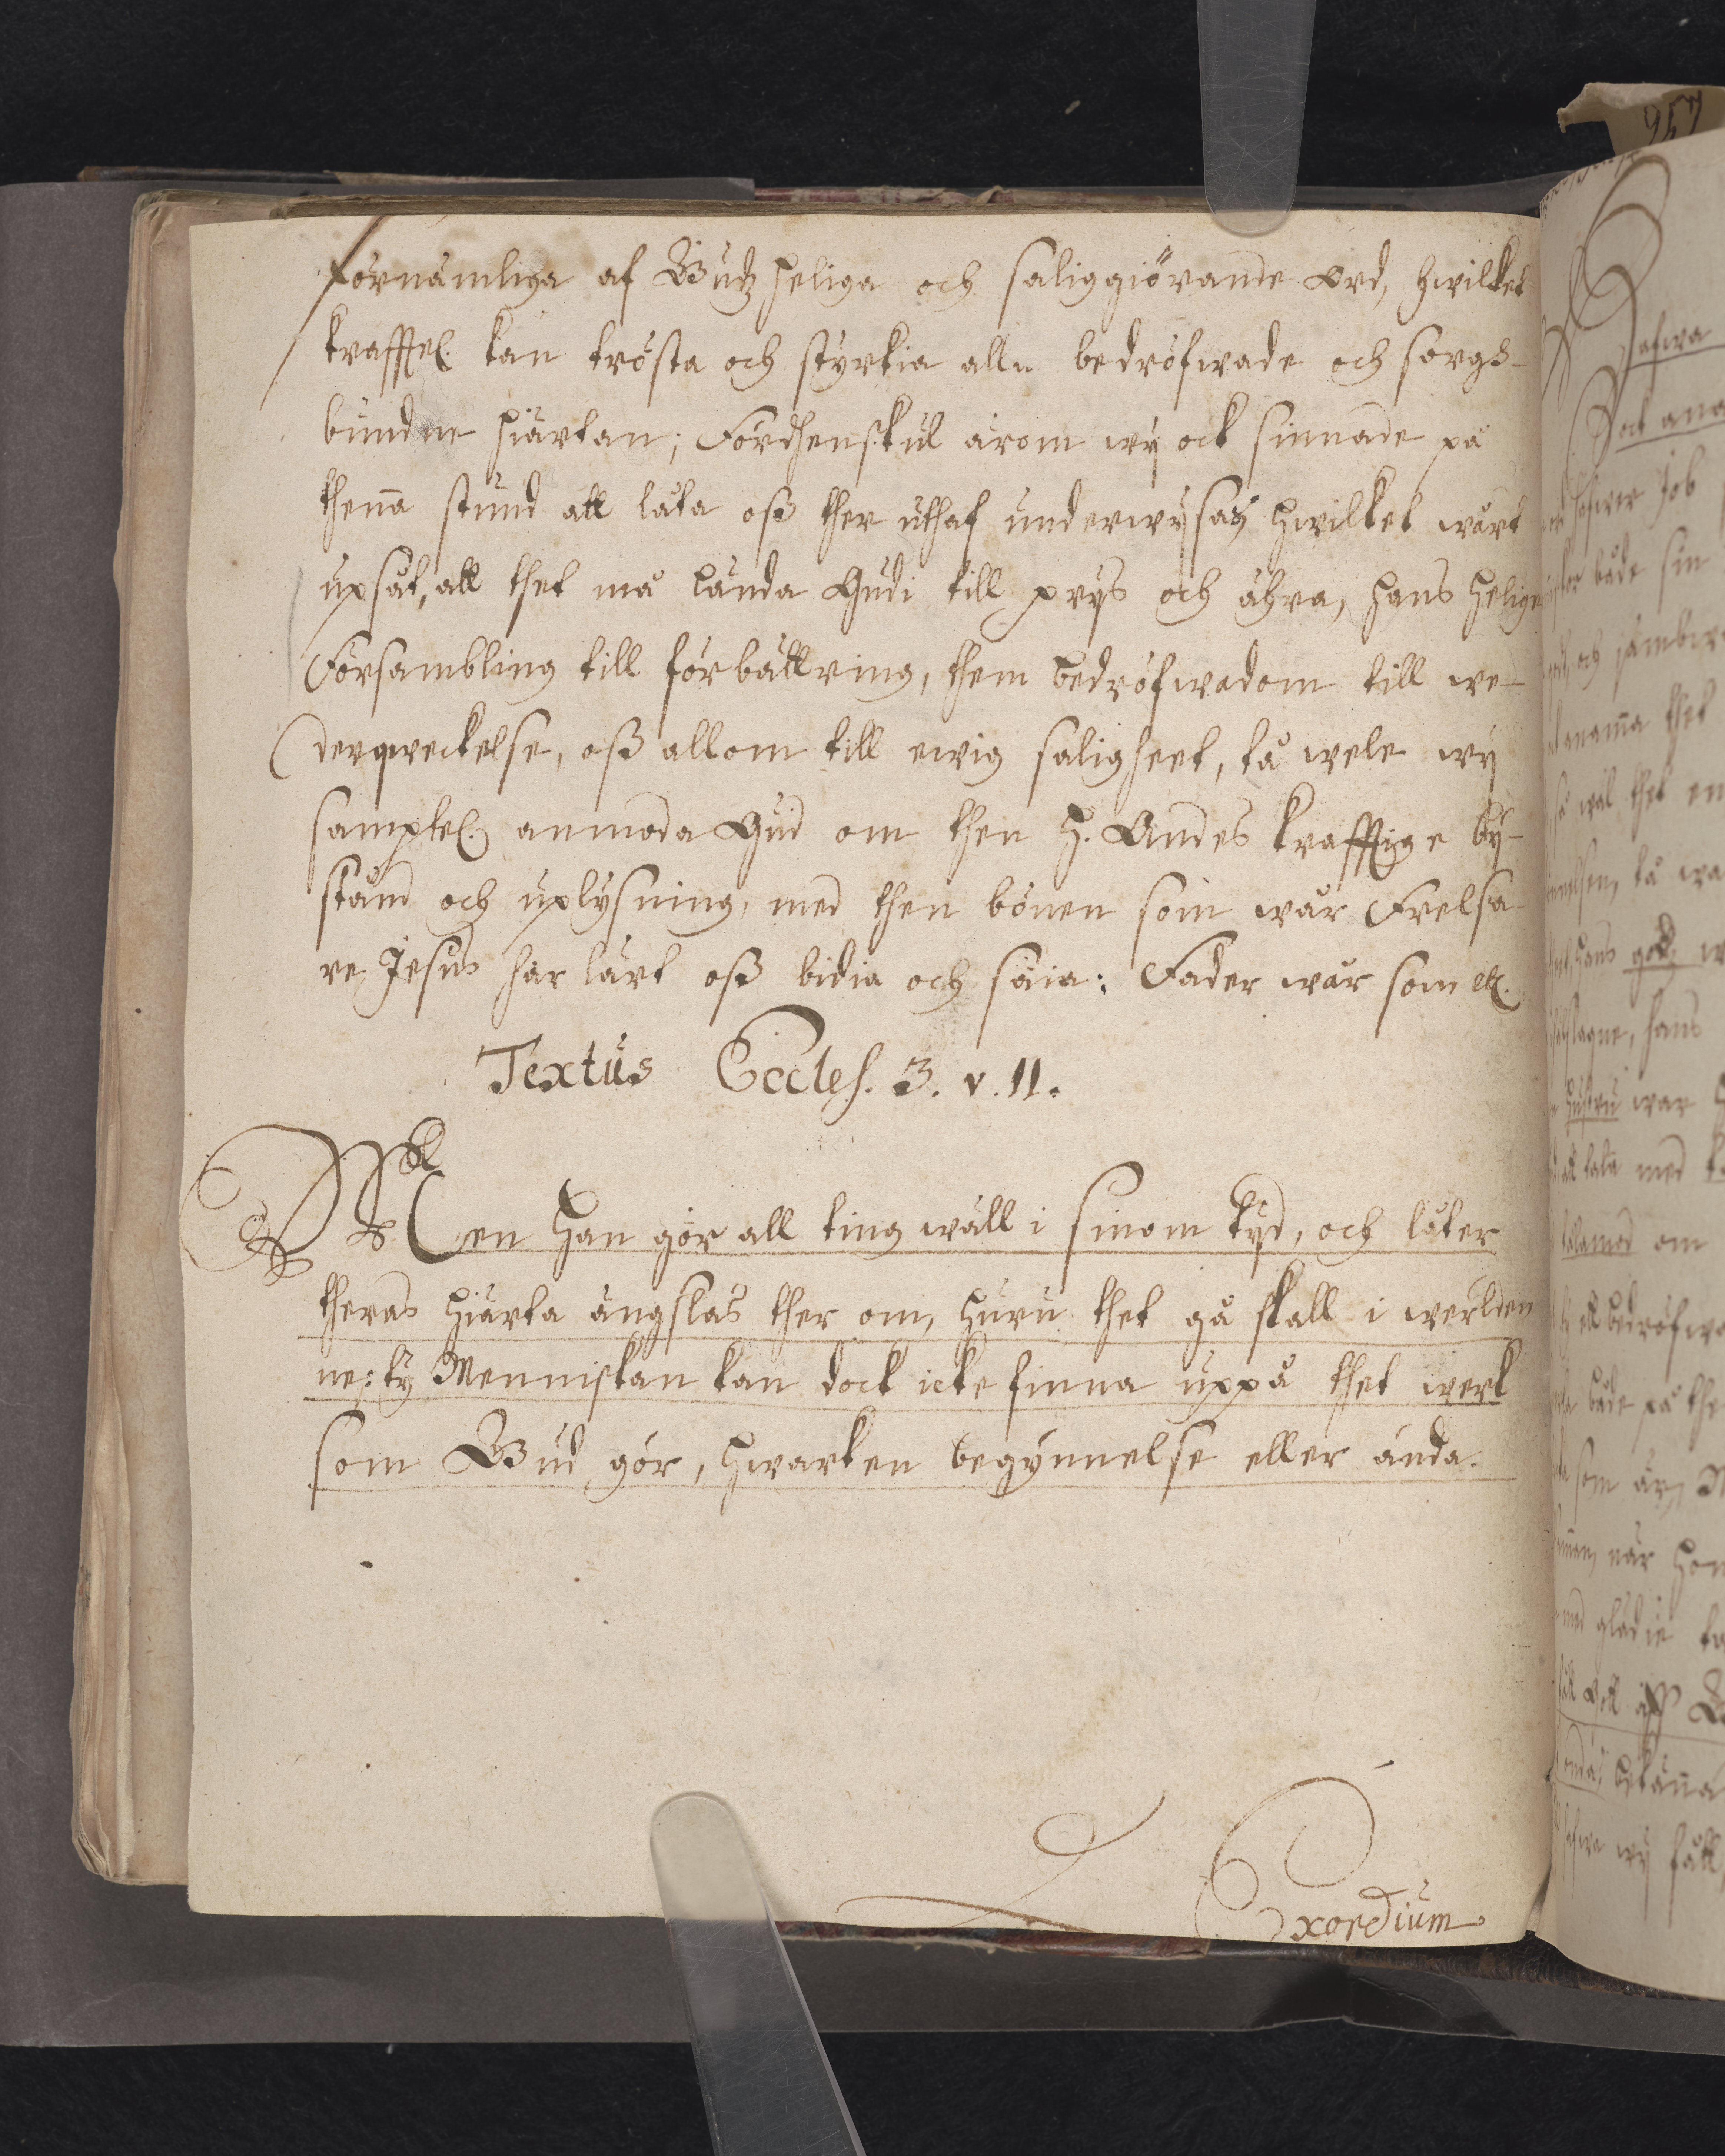 förnämliga af Gudz heliga och saliggiörande Ord, hwilket
krafftel. kan trösta och styrkia alla bedröfwade och sorgs-
bundne hiärtan; Fördhenskul ärom wÿ ock sinnade på
thenna stund att låta oss ther uthaf underwÿsas; hwilket wårt
upsåt, att thet må lända Gudi till prÿs och ähra, hans helige
Försambling till förbättring, them bedröfwadom till we-
derqweckelse, oss allom till ewig saligheet, tå wele wÿ
samptel. anmoda Gud om then H. Andes krafftige bÿ-
stånd och uplÿsning, med then bönen som wår Frelsa-
re Jesus har lärt oss bidia och säia: Fader wår som etc.
Textus Eccles. 3. v. 11.
Men Han gör all ting wäll i sinom tÿd, och låter
theras hiärta ängslas ther om, huru thet gå skall i werlden
ne: tÿ Menniskan kan dock icke finna uppå thet werk
som Gud gör, hwarken begynnelse eller ända.
Exordium
257
Job
både sin
thet
så wäl thet en
tå wa
hans godz
hans
hustru war
låta med
om
både på the
som är
när hon
med glädie
wÿ